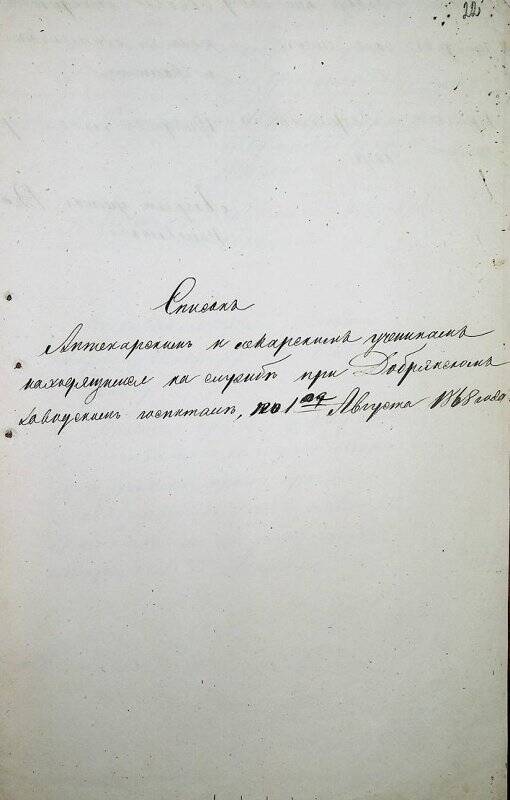 22
Списокъ
Аптекарскимъ и лекарскимъ ученикамъ
находящимся на службѣ при Добрянскомъ
заводскомъ госпиталѣ, по 1ое Августа 1868 года.